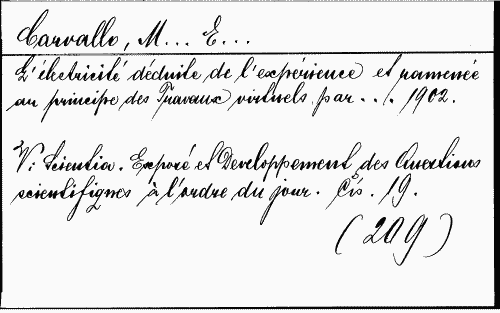 Carvallo, M... E...
L'électricité déduite de l'expérience et ramenée
au principe des Travaux virtuels par . . /. 1902.
V: Scientia. Exposé et Developpement des Questions
scientifiques à l'ordre du jour. Cis. 19.
(209)